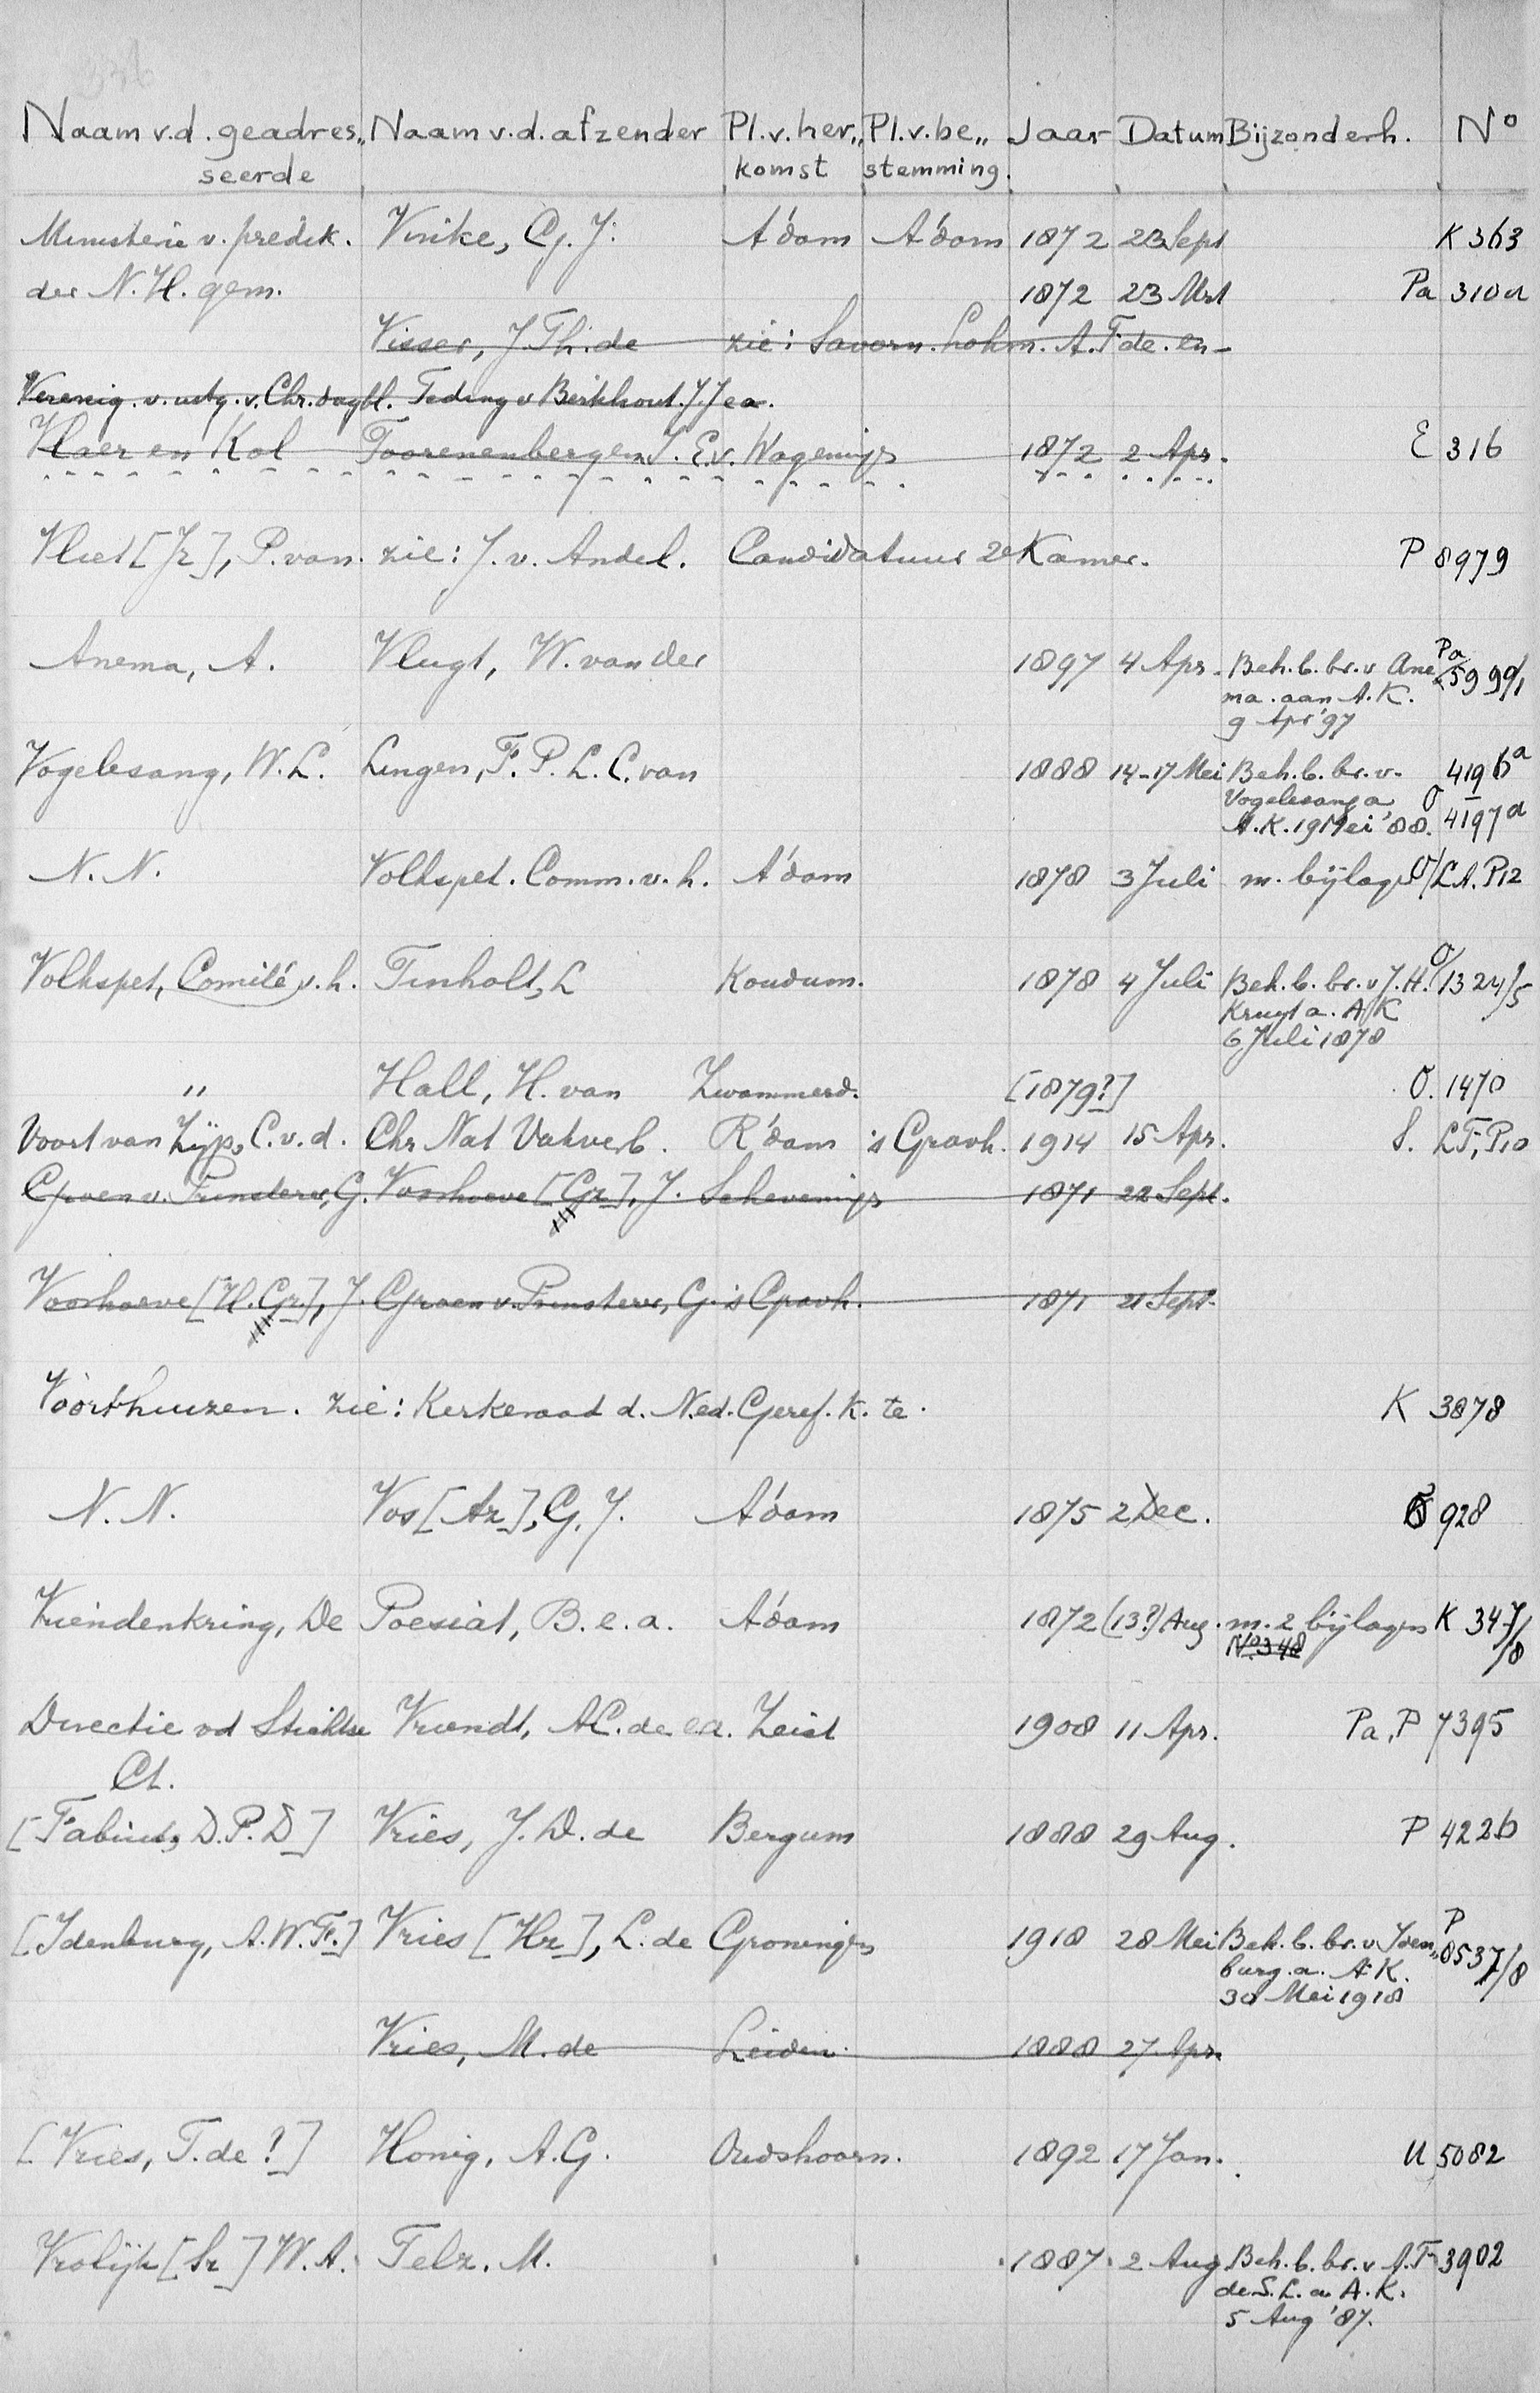 Naam v.d. geadres„ Naam v.d. afzender Pl. v. her„ Pl. v. be„ Jaar Datum Bijzonderh. No
seerde komst stemming.
Ministerie v. predik. Vinke, G. J. A'dam A'dam 1872 23 Sept K 363
der N. H. gem. 1872 23 Mrt Pa 310a
Visser, J. Th. de zie: Savorn. Lohm. A. F. de. en-
Verenig. v. uitg. v. Chr. dagbl. Teding v Berkhout. J. J ea.
Vlaer en Kol Toorenenbergen J. E. v. Wageningen 1872 2 Apr. E 316
Vliet [Jz], P. van. zie: J. v. Andel. Candidatuur 2e Kamer. P 8979
Anema, A. Vlugt, W. van der 1897 4 Apr. Beh. b. br. v Ane Pa 5999/1
ma. aan A. K.
9 Apr '97
Vogelesang, W. L. Lingen, F. P. L. C. van 1888 14-17 Mei Beh. b. br. v. 4196a
Vogelesang a O
A. K. 19 Mei '88. 4197a
N. N. Volkspet. Comm. v. h. A'dam 1878 3 Juli m. bijlage O/ LA. P12
Volkspet, Comité v. h. Tinholt, L Koudum. 1878 4 Juli Beh. b. br. v J. H. O/ 1324/5
Kruyt a. A K
6 Juli 1878
" Hall, H. van Zwammerd. [1879?] O. 1470
Voort van Zijp, C. v. d. Chr Nat Vakverb. R'dam 's Gravh. 1914 15 Apr. S. LF, P10
Groen v. Prinsterer, G. Voorhoeve [Gz], J. Scheveningen 1871 22 Sept.
Voorhoeve [H. Gz], J. Groen v. Prinsterer, G. 's Gravh. 1871 21 Sept.
Voorthuizen. zie: Kerkeraad d. Ned. Geref. K. te. K 3878
N. N. Vos [Az], G. J. A'dam 1875 2 Dec. 928
Vriendenkring, De Poesiat, B. e. a. A'dam 1872 (13?) Aug. m. 2 bijlagen K 347/8
No 348
Directie vd Stichtse Vriendt, AC. de ea. Zeist 1908 11 Apr. Pa, P 7395
Ct.
[Fabius, D. P. D] Vries, J. D. de Bergum 1888 29 Aug. P 4226
[Idenburg, A. W. F.] Vries [Hz], L. de Groningen 1918 28 Mei Beh. b. br. v Iden„ P 8537/8
burg. a. A. K.
30 Mei 1918
Vries, M. de Leiden. 1888 27 Apr.
[Vries, T. de?] Honig, A. G. Oudshoorn. 1892 17 Jan. U 5082
Vrolijk [Sr] W. A. Felz. M. 1887. 2 Aug Beh. b. br. v A. F 3902
de S. L. a A. K.
5 Aug '87.